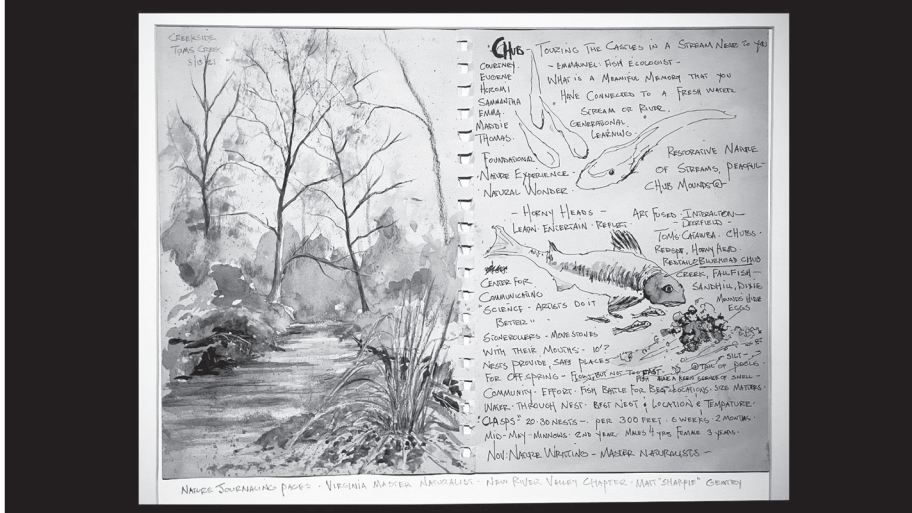 CREEKSIDE
TOMS CREEK
CHUB - TOURING THE CASTLES IN A STREAM NEAR TO YOU
COURTNEY.
EUGENE
HIROMI
SAMMANTHA
EMMA.
MADDIE
THOMAS.
- EMMANUEL: FISH ECOLOGIST -
WHAT IS A MEANIFUL MEMORY THAT YOU
HAVE CONNECTED TO A FRESH WATER
STREAM OR RIVER.
GENERATIONAL
LEARNING.
FOUNDATIONAL
NATURE EXPERIENCE.
NATURAL WONDER
RESTORATIVE NATURE
OF STREAMS, PEACFUL
CHUB MOUNDS
- HORNY HEADS -
LEARN. ENTERTAIN. REFLECT
ART FUSED. INTERACTION
TOMS. CATAWBA. CHUBS.
HORNY HEAD.
BLUEHEAD CHUB
CREEK, FALLFISH -
SANDHILL, DIXIE
MOUNDS HIDE
EGGS
CENTER FOR
COMMUNICATING
"SCIENCE - ARTISTS DO IT
BETTER"
STONEROLLERS - MOVE STONES
WITH THEIR MOUTHS - 10'?
NESTS PROVIDE, SAFE PLACES
FOR OFF SPRING - FLOWS, BUT NOT TOO FAST.
- SILT -
@ TAIL OF POOLS
FISH HAVE A KEEN SENSE OF SMELL -
COMMUNITY - EFFORT - FISH BATTLE FOR BEST LOCATIONS - SIZE MATTERS.
WATER - THROUGH NEST - BEST NEST & LOCATION & TEMPATURE.
"CLASPS" 20-30 NESTS - PER 300 FEET - 6 WEEKS - 2 MONTHS.
MID-MAY - MINNOWS - 2ND YEAR MALES 4 YRS FEMALE 3 YEARS.
NOV: NATURE WRITING - MASTER NATURALISTS -
NATURE JOURNALING PAGES - VIRGINIA MASTER NATURALIST - NEW RIVER VALLEY CHAPTER - MATT "SHARPIE" GENTRY